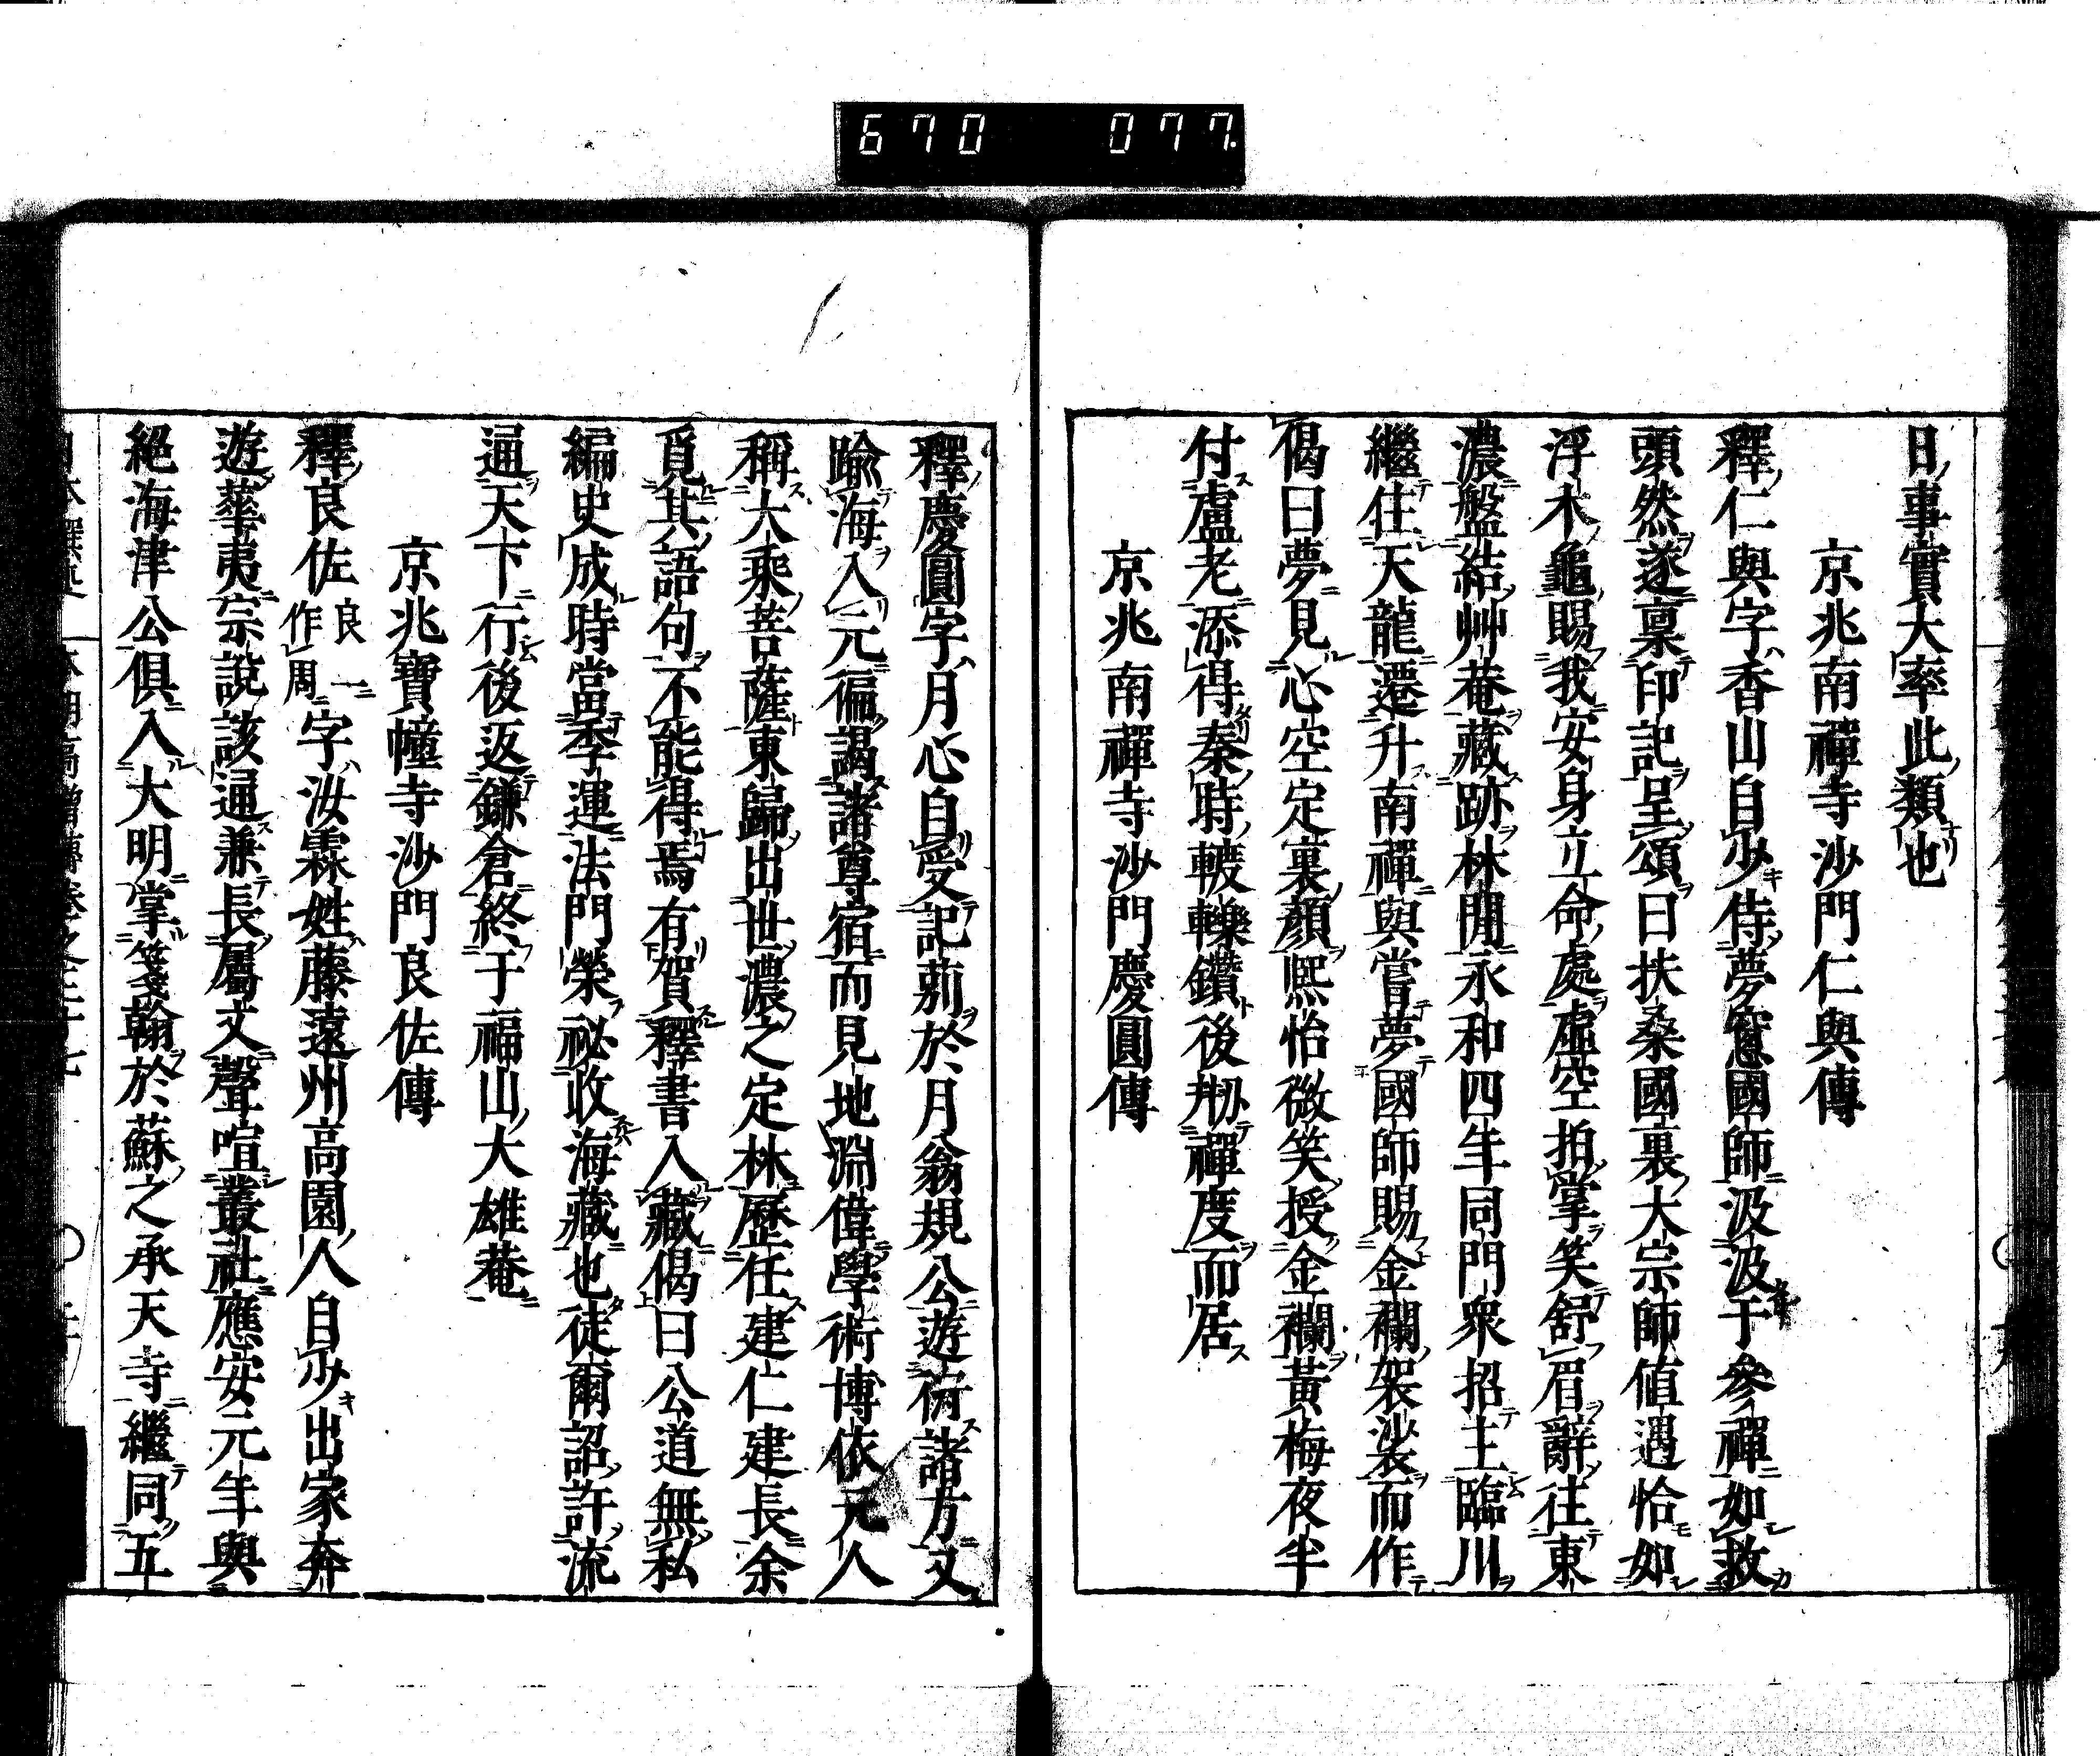 670 077.
日事實大率此類也
京兆南禪寺沙門仁與傳
釋仁與字香山自少侍夢窓國師汲汲于參禪如救
頭然遂稟印記呈頌曰扶桑國裏大宗師値遇恰如
浮木龜賜我安身立命處虛空拍掌笑舒眉辭往東
濃盤結艸菴藏跡林間永和四年同門衆招主臨川
繼住天龍遷升南禪與嘗夢國師賜金襴袈裟而作
偈曰夢見心空定裏顏熙怡微笑授金襴黃梅夜半
付盧老添得秦時𨍏轢鑽後刱禪度而居
京兆南禪寺沙門慶圓傳
釋慶圓字月心自受記莂於月翁規公遊衒諸方又
踰海入元徧謁諸尊宿而見地淵偉學術博依元人
稱大乘菩薩東歸出世濃之定林歷任建仁建長余
覓其語句不能得焉有賀釋書入藏偈曰公道無私
編史成時當季運法門榮祕收海藏也徒爾詔許流
通天下行後返鎌倉終于福山大雄菴
京兆寶幢寺沙門良佐傳
釋良佐良一作周字汝霖姓藤遠州高園人自少出家奔
遊華夷宗說該通兼長屬文聲喧叢社應安元年與
絕海津公俱入大明掌箋翰於蘇之承天寺繼同五